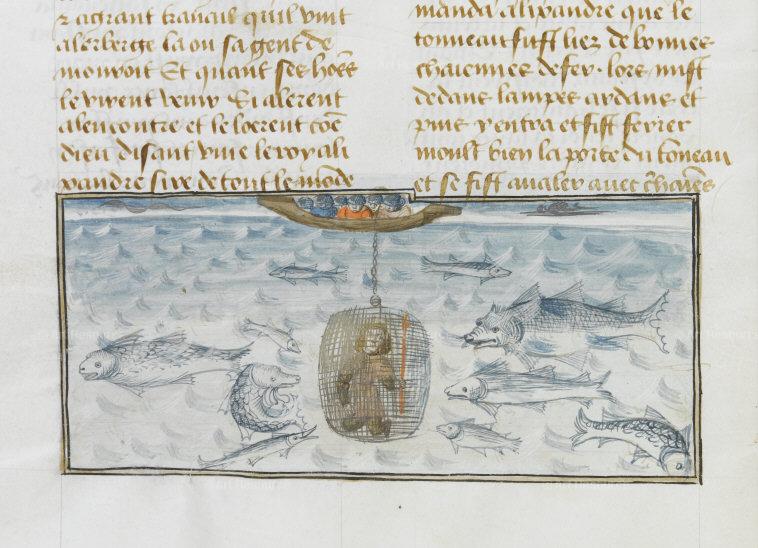 z a grant travail qu'il vint
a l'erberge la ou sa gent de
mouroit Et quant ses hoēs
le virent venir Si alerent
a l'encontre et le loerent cōē
dieu disant vive le roy ali
xandre sire de tout le mōde
manda alixandre que le
tonneau fust liez de bonnes
chaiennes de fer. lors mist
dedans lampes ardans et
puis y entra et fist fermer
moult bien la porte du toneau
et se fist avaler avec chaiēs